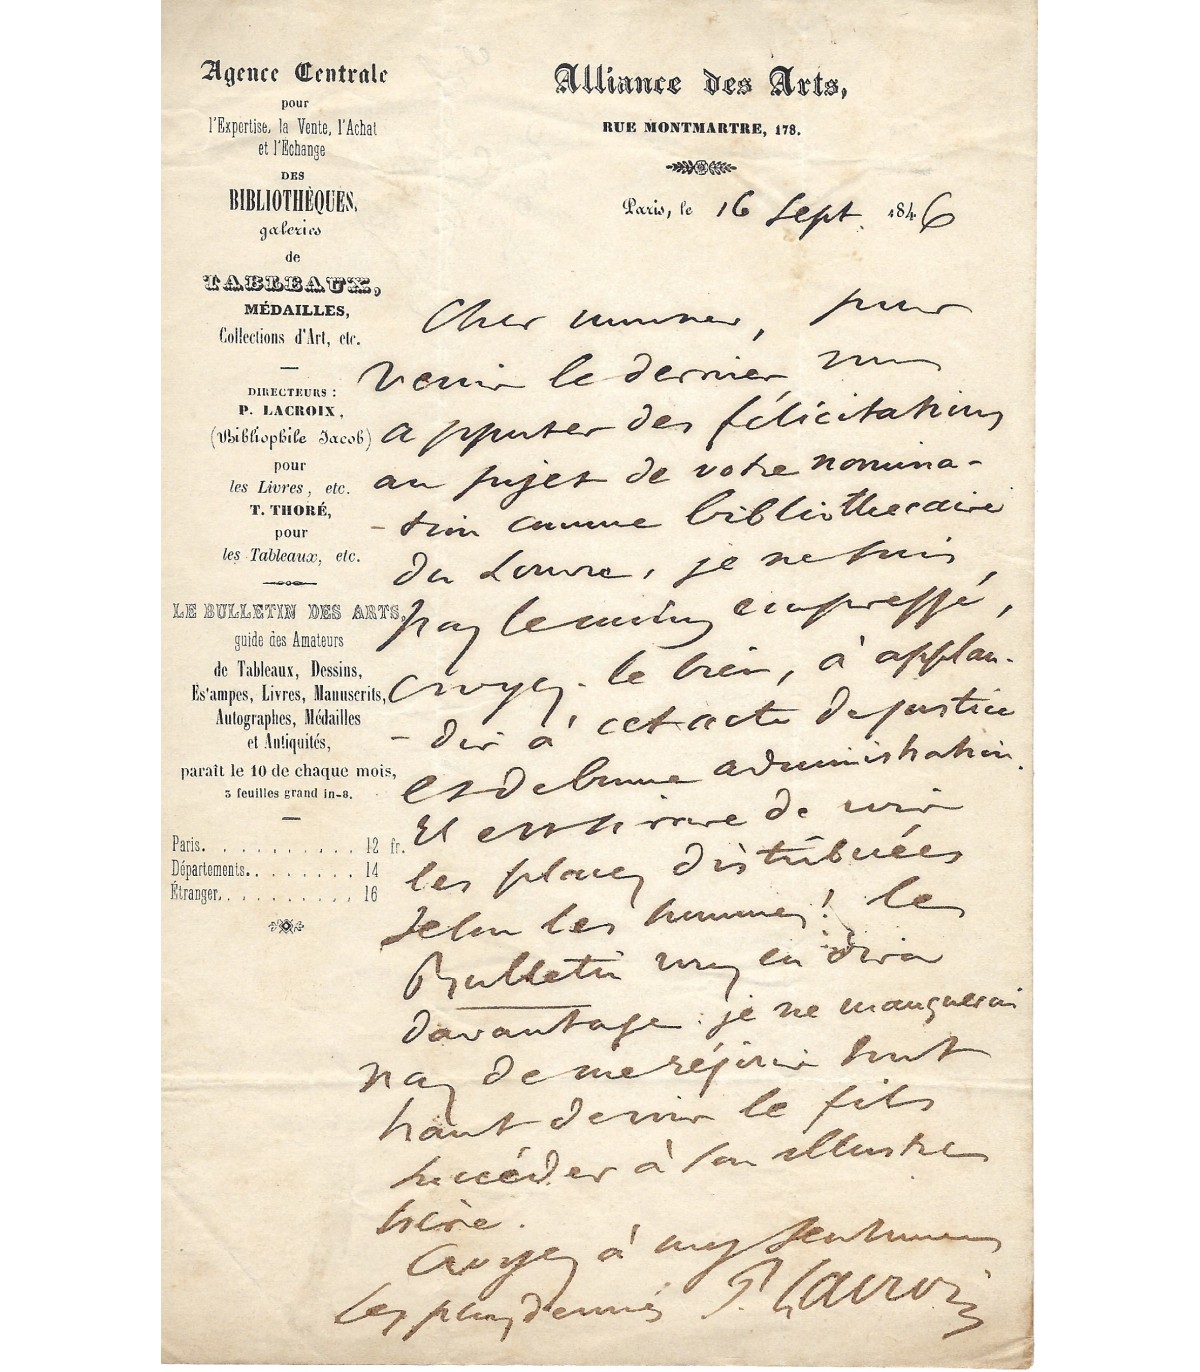 Agence Centrale
pour
l'Expertise, la Vente, l'Achat
et l'Échange
DES
BIBLIOTHÈQUES,
galeries
de
TABLEAUX,
MÉDAILLES,
Collections d'Art, etc.
DIRECTEURS :
P. LACROIX,
(Bibliophile Jacob)
pour
les Livres, etc.
T. THORÉ,
pour
les Tableaux, etc.
LE BULLETIN DES ARTS,
guide des Amateurs
de Tableaux, Dessins,
Es'ampes, Livres, Manuscrits,
Autographes, Médailles
et Antiquités,
paraît le 10 de chaque mois,
3 feuilles grand in-8.
Paris. . . . . . . . . . . 12 fr.
Départements. . . . . . . . 14
Étranger. . . . . . . . . . 16
Alliance des Arts,
RUE MONTMARTRE, 178.
Paris, le 16 Sept. 1846
Cher monsieur, pour
venir le dernier vous
apporter des félicitations
au sujet de votre nomina-
-tion comme bibliothécaire
du Louvre, je ne suis
pas le moins empressé,
croyez-le bien, à applau-
-dir à cet acte de justice
et de bonne administration.
Il est si rare de voir
les places distribuées
selon les hommes! le
Bulletin vous en dira
davantage : je ne manquerai
pas de me réjouir tout
haut de voir le fils
succéder à son illustre
père.
Croyez à mes sentimens
les plus dévoués P. Lacroix